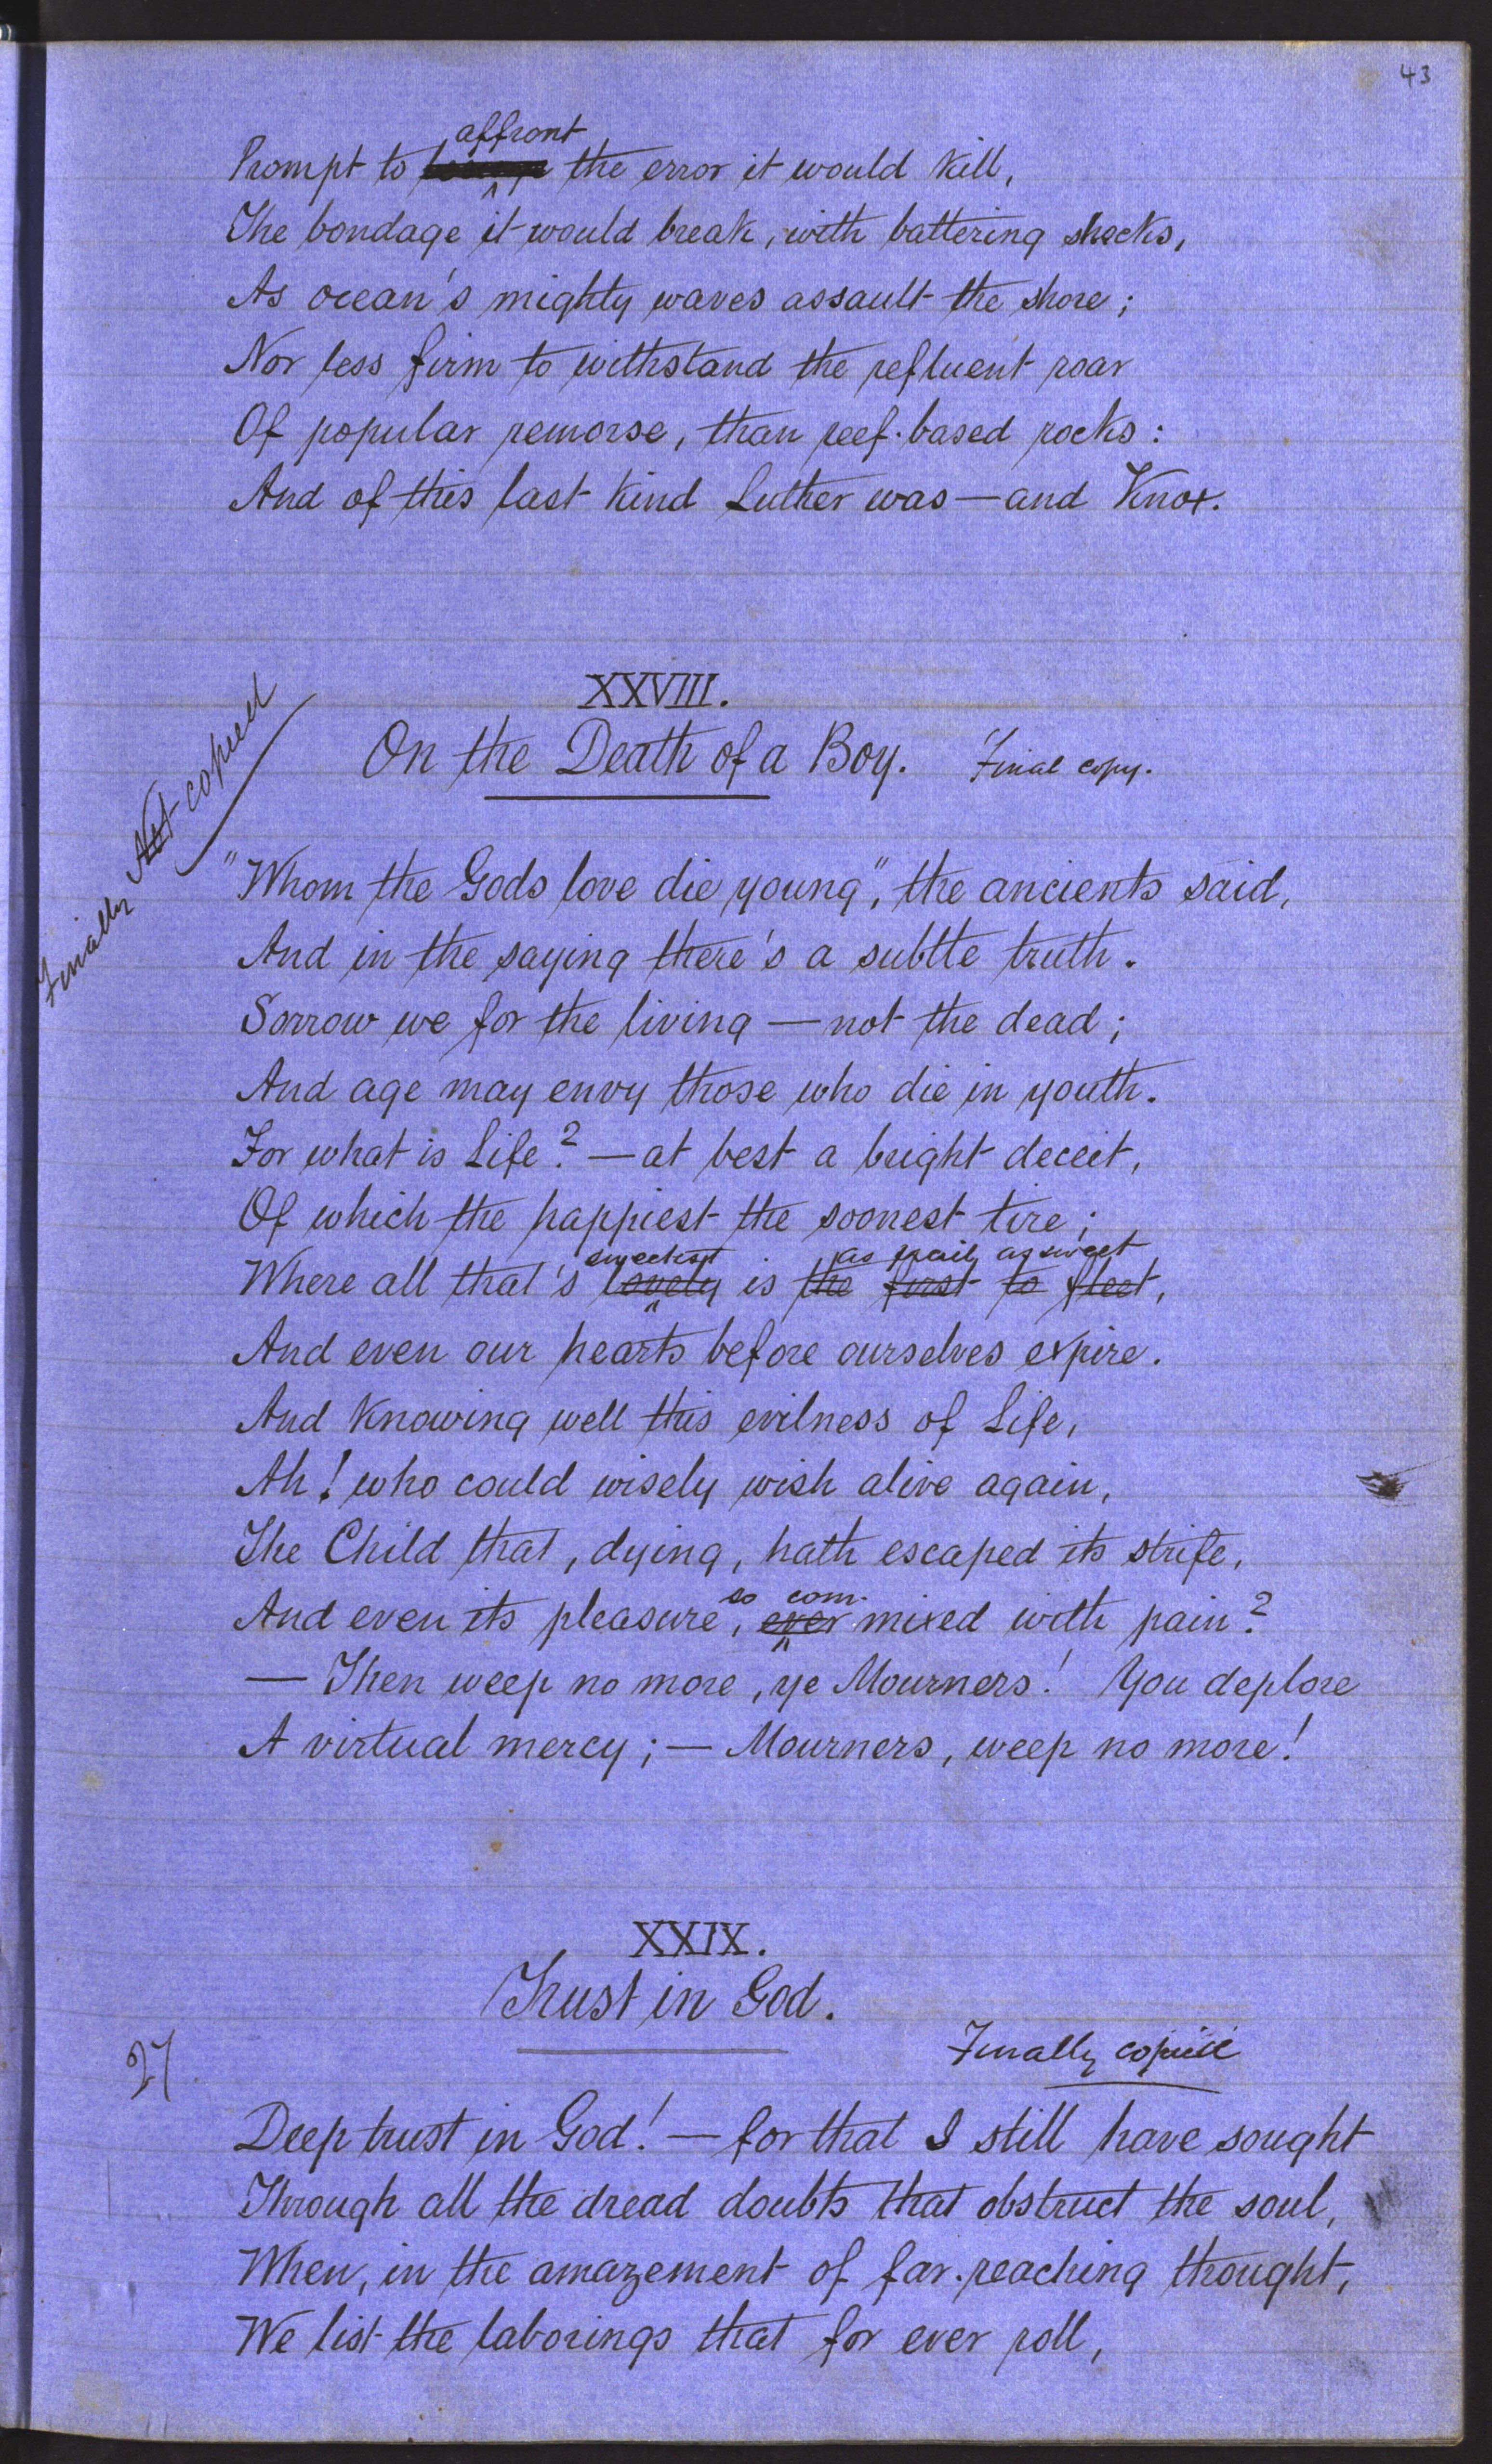 43
affront
Prompt to the error it would kill,
The bondage it would break, with battering shocks,
As ocean's mighty waves assault the shore;
Nor less firm to withstand the refluent roar
Of popular remorse, than reef-based rocks:
And of this last kind Luther was — and Knox.
XXVIII.
On the Death of a Boy. Final copy.
Finally Not copied
"Whom the Gods love die young", the ancients said,
And in the saying there's a subtle truth.
Sorrow we for the living — not the dead;
And age may envy those who die in youth.
For what is Life? — at best a bright deceit,
Of which the happiest the soonest tire;
sweetest as frail as sweet
Where all that's lovely is the first to fleet,
And even our hearts before ourselves expire.
And knowing well this evilness of Life,
Ah! who could wisely wish alive again,
The Child that, dying, hath escaped its strife,
so com-
And even its pleasure, ever mixed with pain?
— Then weep no more, ye Mourners! You deplore
A virtual mercy; — Mourners, weep no more!
XXIX.
Trust in God.
Finally copied
27
Deep trust in God! — for that I still have sought
Through all the dread doubts that obstruct the soul,
When, in the amazement of far-reaching thought,
We list the laborings that for ever roll,